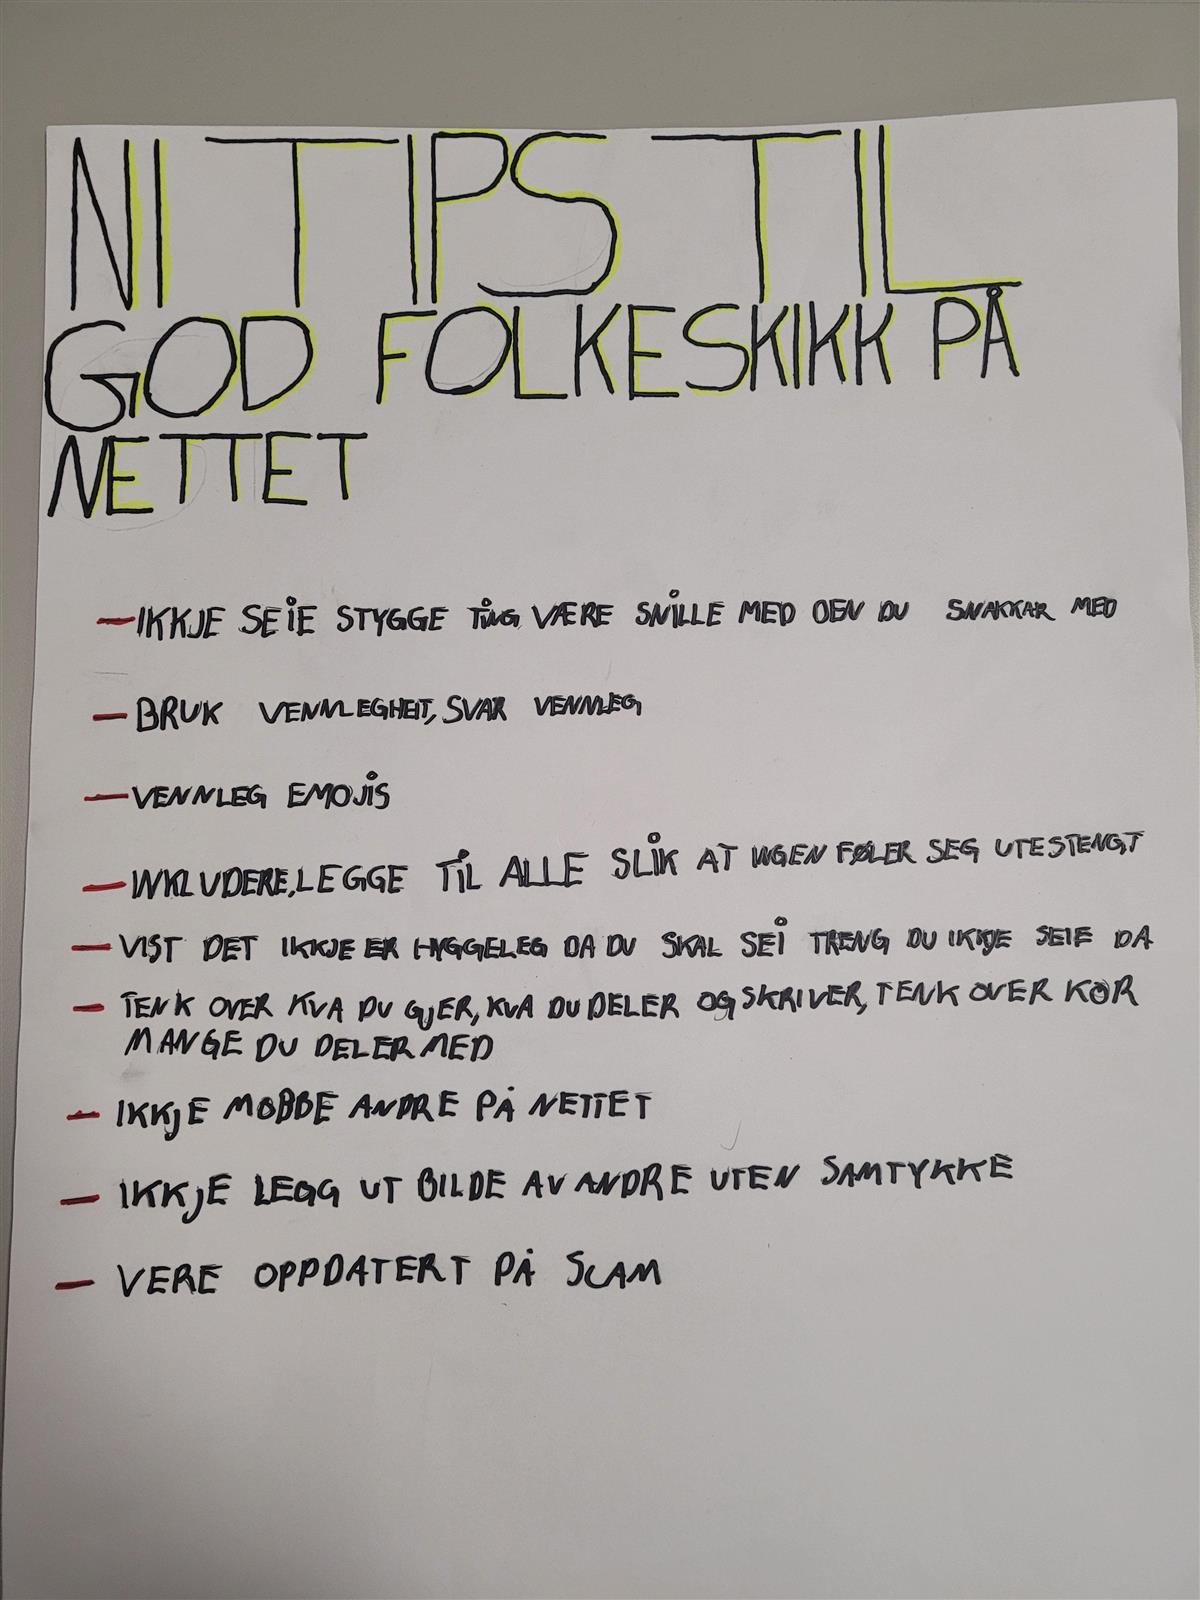 NI TIPS TIL
GOD FOLKESKIKK PÅ
NETTET
- IKKJE SEIE STYGGE TING VÆRE SNILLE MED DEN DU SNAKKAR MED
- BRUK VENNLEGHEIT, SVAR VENNLEG
- VENNLEG EMOJIS
- INKLUDERE, LEGGE TIL ALLE SLIK AT INGEN FØLER SEG UTESTENGT
- VIST DET IKKJE ER HYGGELEG DA DU SKAL SEI TRENG DU IKKJE SEIE DA
- TENK OVER KVA DU GJER, KVA DU DELER OG SKRIVER, TENK OVER KOR
MANGE DU DELER MED
- IKKJE MOBBE ANDRE PÅ NETTET
- IKKJE LEGG UT BILDE AV ANDRE UTEN SAMTYKKE
- VERE OPPDATERT PÅ SCAM